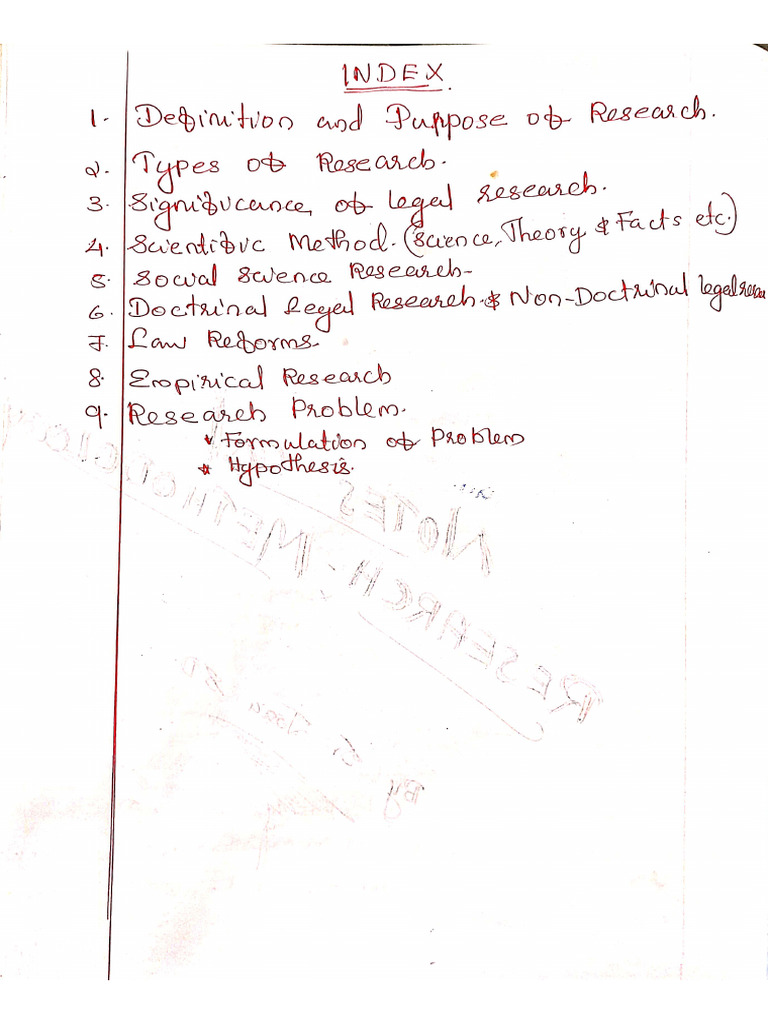 INDEX.
1. Definition and Purpose of Research.
2. Types of Research.
3. Significance, of legal research.
4. Scientific Method. (Science, Theory & Facts etc.)
5. Social Science Research-
6. Doctrinal Legal Research & Non-Doctrinal legal
7. Law Reforms.
8. Empirical Research
9. Research Problem.
* Formulation of Problem
* Hypothesis.
NOTES
RESEARCH-METHODOLOGY
By